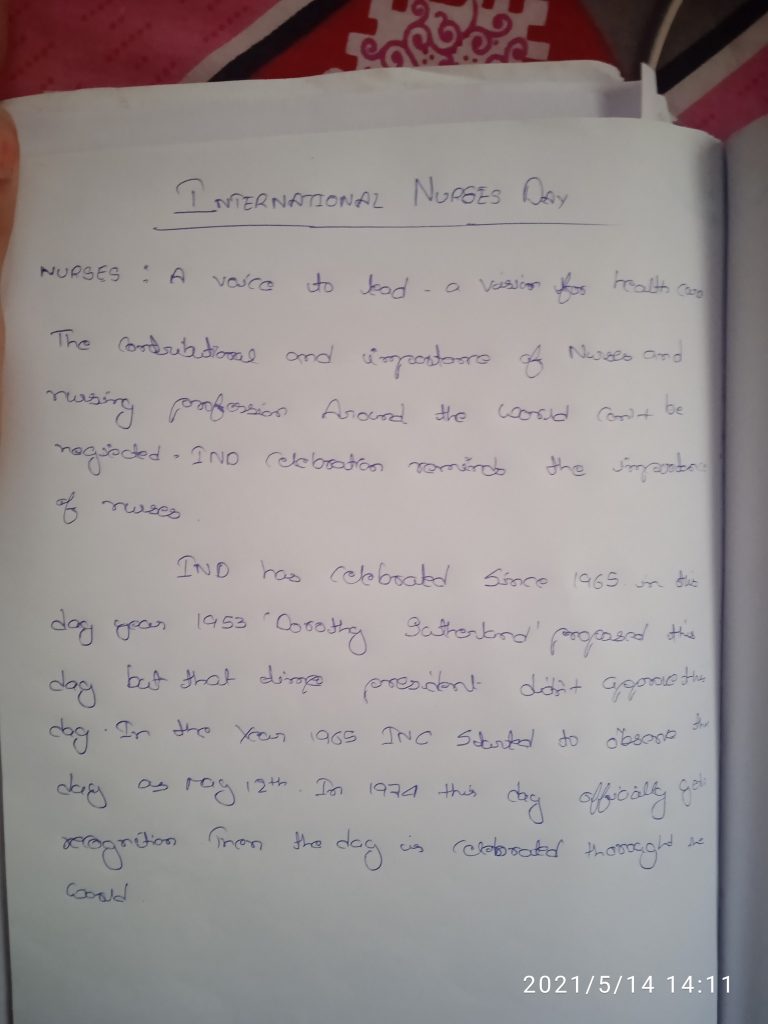 INTERNATIONAL NURSES DAY
NURSES : A voice to lead - a vision for health care
The contributional and importance of Nurses and
nursing profession Around the woorld can't be
neglected. IND Celebration reminds the importance
of nurses.
IND has Celebrated Since 1965 in this
day year 1953 'Dorothy Sutherland' proposed this
day but that time president didn't approve the
day. In the Year 1965 INC Started to observe the
day as may 12th. In 1974 this day officially get
recognition Then the day is celebrated throught the
woorld.
2021/5/14 14:11